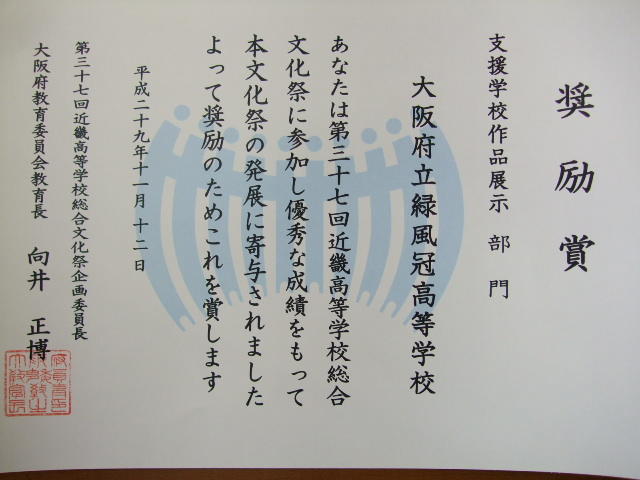 奨励賞
支援学校作品展示 部門
大阪府立緑風冠高等学校
あなたは第三十七回近畿高等学校総合
文化祭に参加し優秀な成績をもって
本文化祭の発展に寄与されました
よって奨励のためこれを賞します
平成二十九年十一月 十二 日
第三十七回近畿高等学校総合文化祭企画委員長
大阪府教育委員会教育長 向井 正博